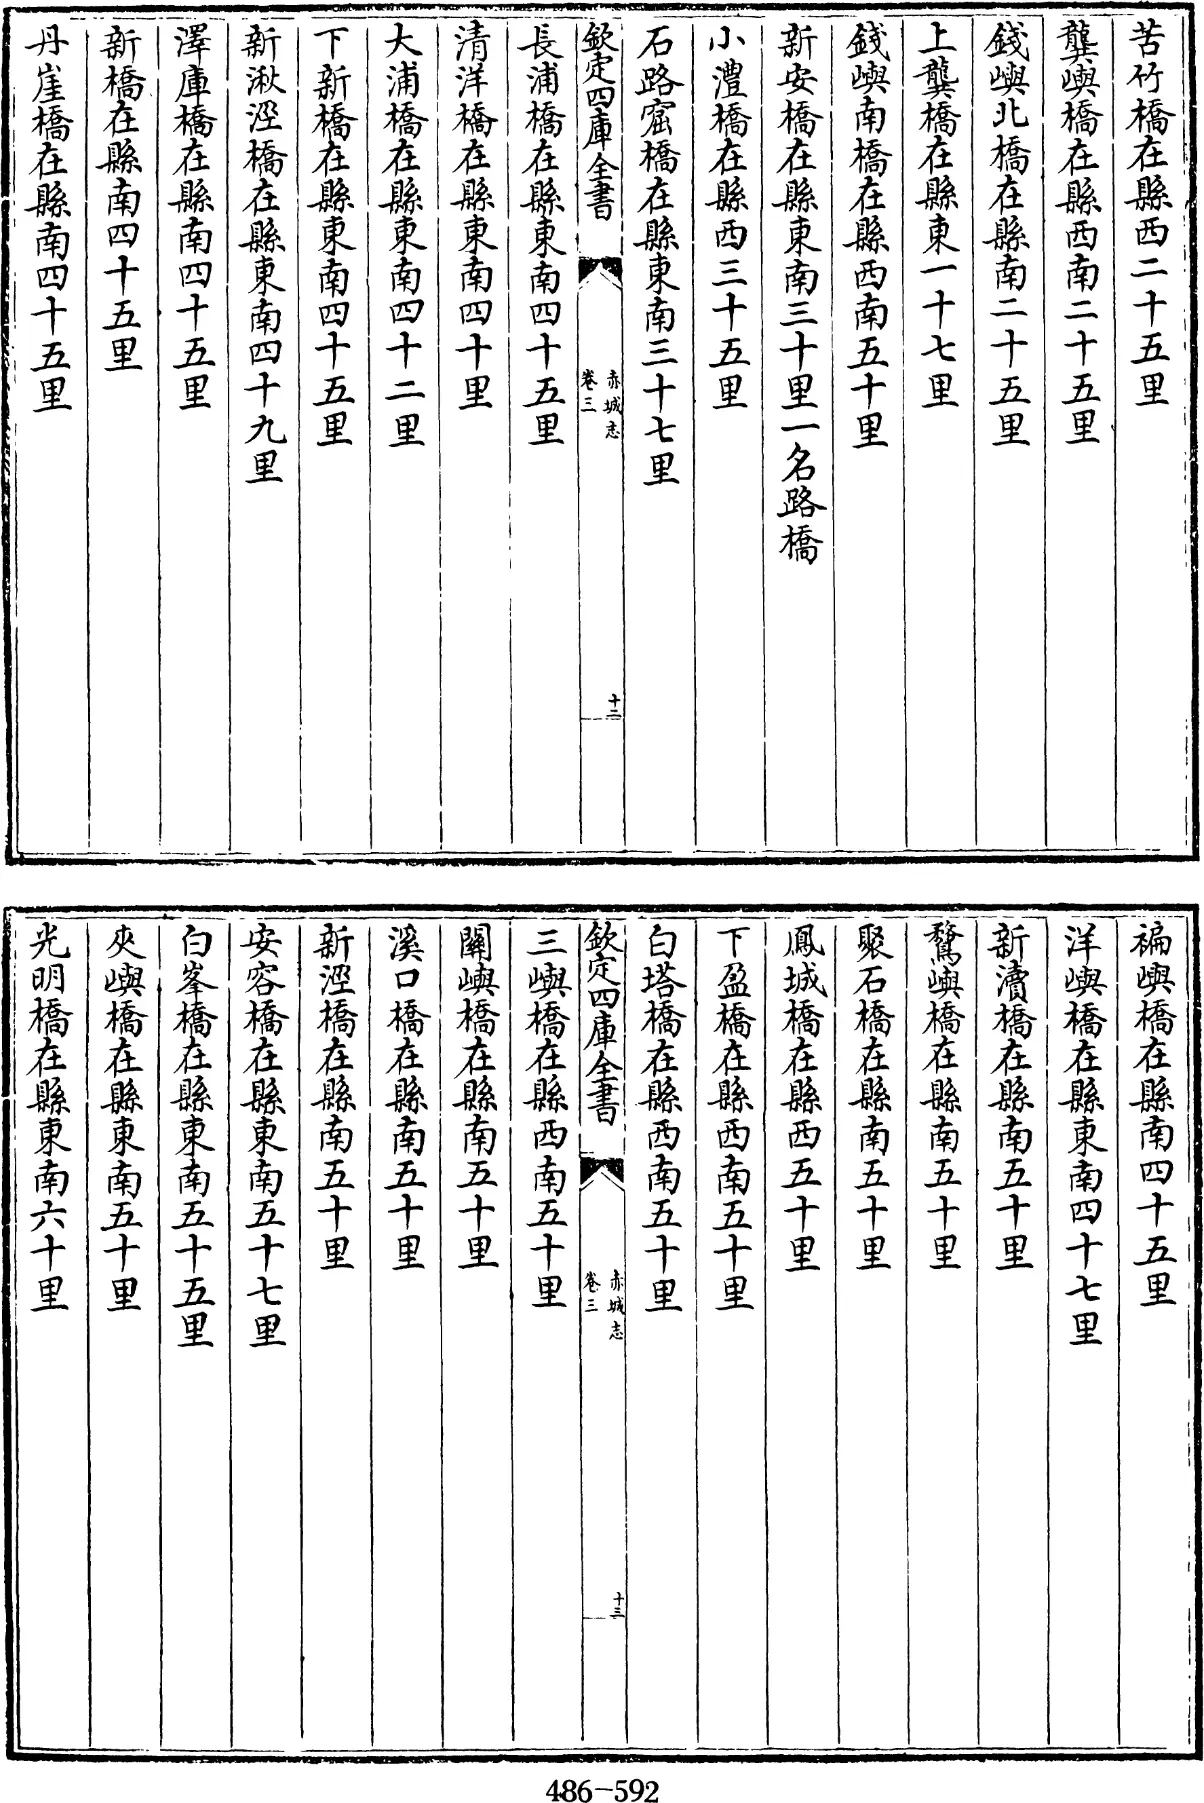 苦竹橋在縣西二十五里
龔嶼橋在縣西南二十五里
錢嶼北橋在縣南二十五里
上龔橋在縣東一十七里
錢嶼南橋在縣西南五十里
新安橋在縣東南三十里一名路橋
小澧橋在縣西三十五里
石路窟橋在縣東南三十七里
欽定四庫全書
赤城志
卷三
十二
長浦橋在縣東南四十五里
清洋橋在縣東南四十里
大浦橋在縣東南四十二里
下新橋在縣東南四十五里
新湫涇橋在縣東南四十九里
澤庫橋在縣南四十五里
新橋在縣南四十五里
丹崖橋在縣南四十五里
褊嶼橋在縣南四十五里
洋嶼橋在縣東南四十七里
新瀆橋在縣南五十里
鶩嶼橋在縣南五十里
聚石橋在縣南五十里
鳳城橋在縣西五十里
下盈橋在縣西南五十里
白塔橋在縣西南五十里
欽定四庫全書
赤城志
卷三
十三
三嶼橋在縣西南五十里
關嶼橋在縣南五十里
溪口橋在縣南五十里
新涇橋在縣南五十里
安容橋在縣東南五十七里
白峯橋在縣東南五十五里
夾嶼橋在縣東南五十里
光明橋在縣東南六十里
486-592